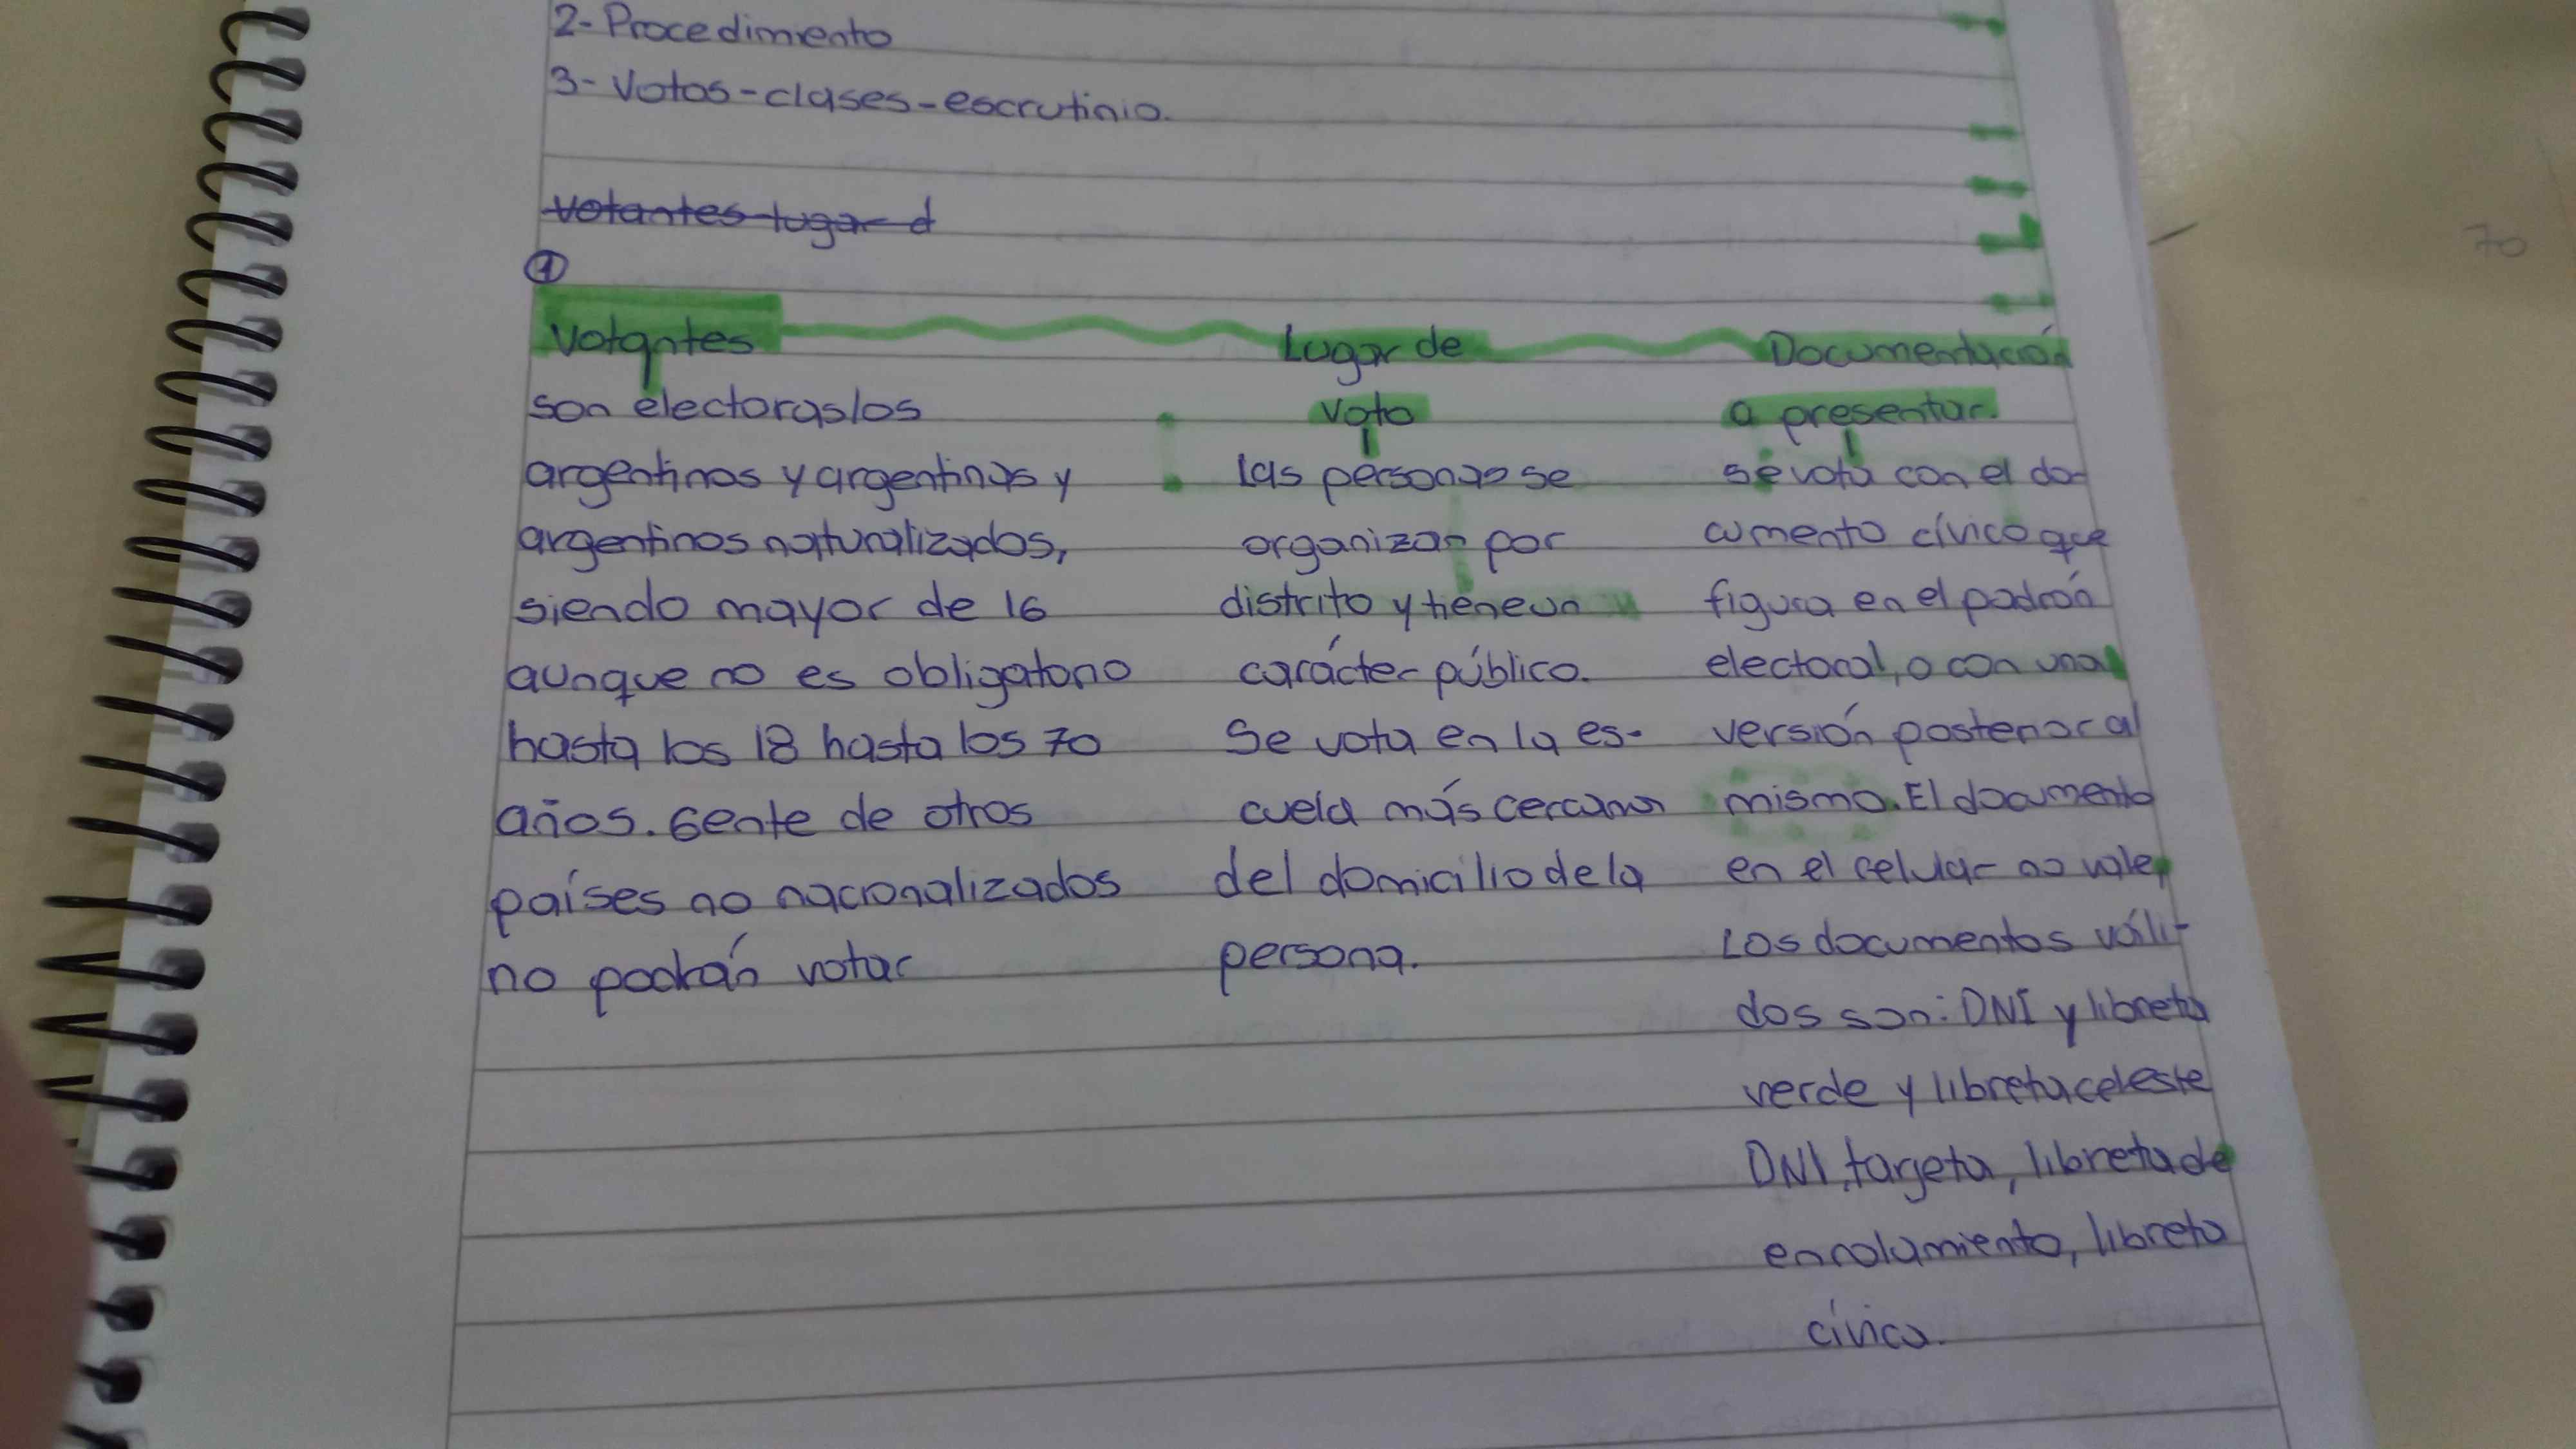 2- Procedimiento
3- Votos-clases-escrutinio.
votantes lugar d
1
Votantes
son electoras/os
argentinos y argentinas y
argentinos naturalizados,
siendo mayor de 16
aunque no es obligatorio
hasta los 18 hasta los 70
años. Gente de otros
países no nacionalizados
no podrán votar
Lugar de
voto
Las personas se
organizan por
distrito y tiene un
carácter público.
Se vota en la es-
cuela más cercana
del domicilio de la
persona.
Documentación
a presentar.
se vota con el do-
cumento cívico que
figura en el padrón
electoral, o con una
versión posterior al
mismo. El documento
en el celular no vale,
Los documentos váli-
dos son: DNI y libreta
verde y libreta celeste
DNI, tarjeta, libreta de
enrolamiento, libreta
cívica.
70